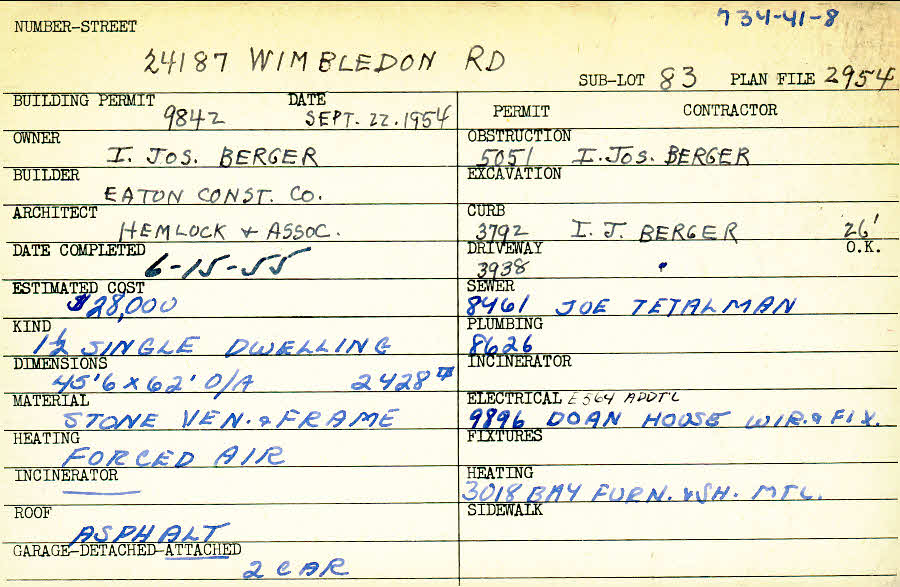 734-41-8
NUMBER-STREET
24187 WIMBLEDON RD
SUB-LOT 83 PLAN FILE 2954
BUILDING PERMIT DATE
9842 SEPT. 22. 1954
OWNER
I. JOS. BERGER
BUILDER
EATON CONST. CO.
ARCHITECT
HEMLOCK & ASSOC.
DATE COMPLETED
6-15-55
ESTIMATED COST
$28,000
KIND
1½ SINGLE DWELLING
DIMENSIONS
45'6 x 62' O/A 2428
MATERIAL
STONE VEN. & FRAME
HEATING
FORCED AIR
INCINERATOR
ROOF
ASPHALT
GARAGE-DETACHED-ATTACHED
2 CAR
PERMIT CONTRACTOR
OBSTRUCTION
5051 I. JOS. BERGER
EXCAVATION
CURB
3792 I. J. BERGER 26'
DRIVEWAY O.K.
3938 "
SEWER
8461 JOE TETALMAN
PLUMBING
8626
INCINERATOR
ELECTRICAL E564 ADDTL
9896 DOAN HOUSE WIR. & FIX.
FIXTURES
HEATING
3018 BAY FURN. & SH. MTL.
SIDEWALK